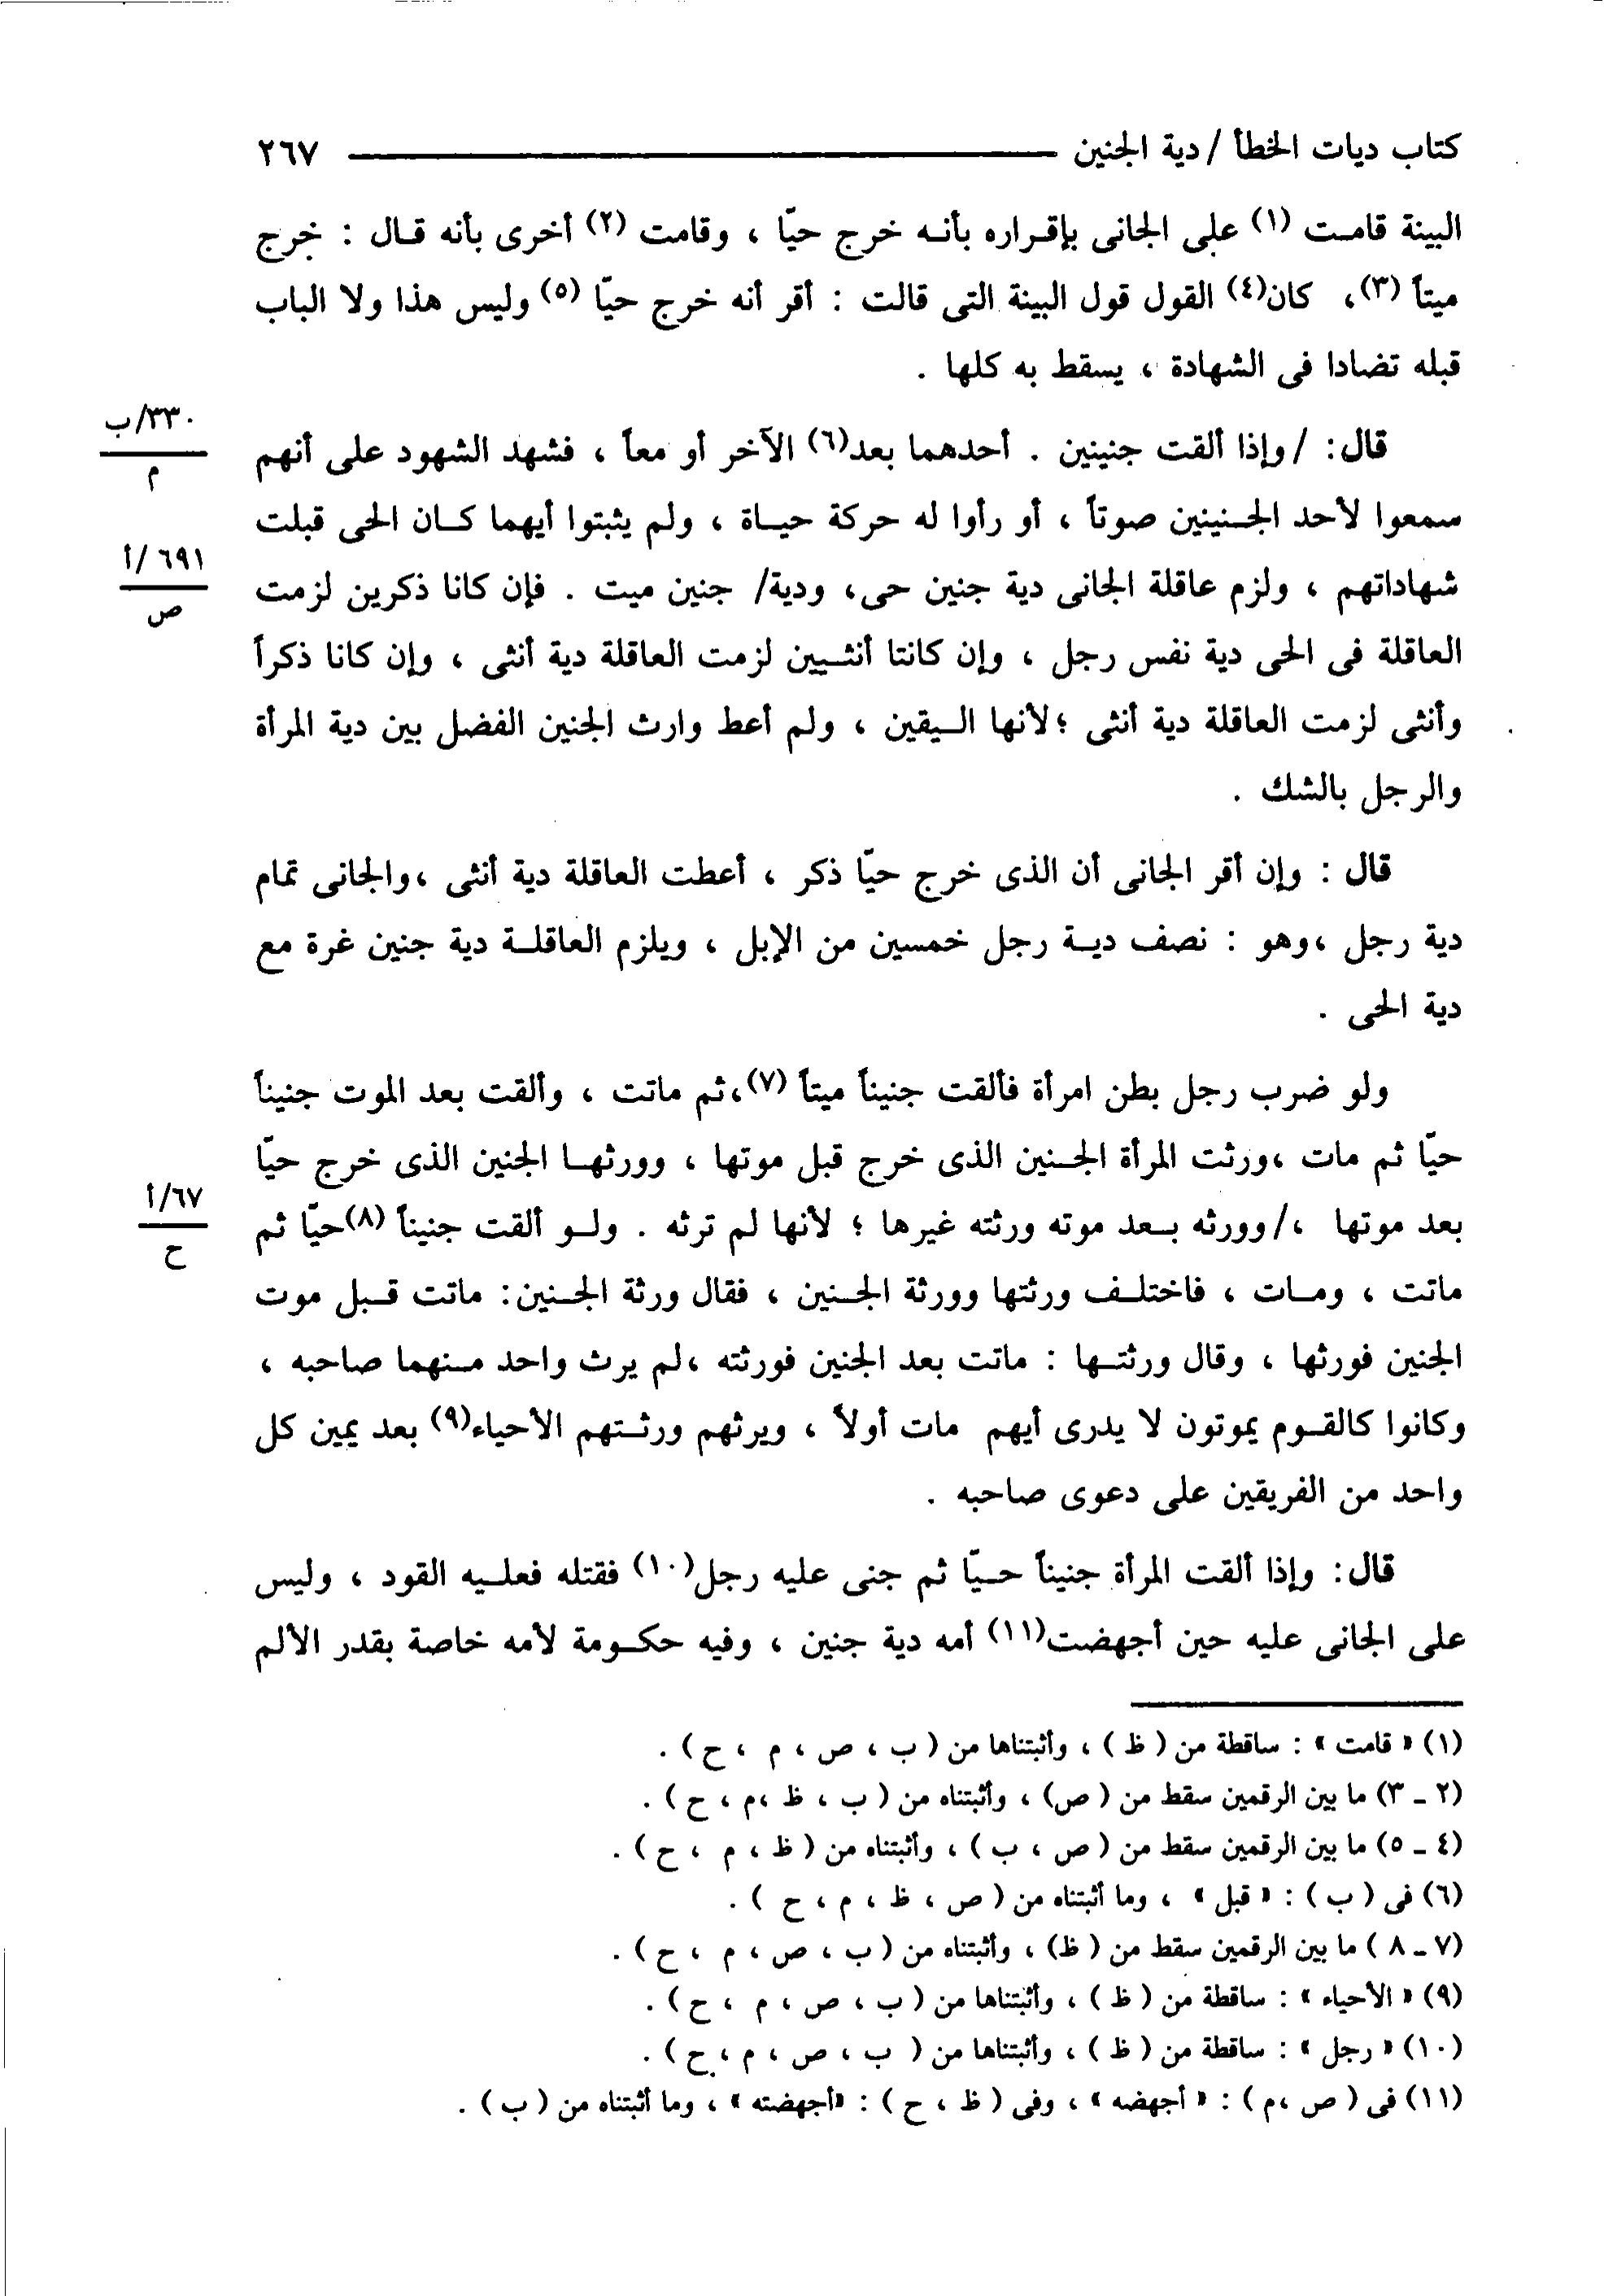 كتاب ديات الخطأ / دية الجنين ٢٦٧
البينة قامت (١) على الجانى بإقراره بأنه خرج حيّا ، وقامت (٢) أخرى بأنه قال : خرج
ميتاً (٣)، كان(٤) القول قول البينة التى قالت : أقر أنه خرج حيّا (٥) وليس هذا ولا الباب
قبله تضادا فى الشهادة ، يسقط به كلها .
قال: / وإذا ألقت جنينين . أحدهما بعد(٦) الآخر أو معاً ، فشهد الشهود على أنهم
٣٣٠/ب
م
سمعوا لأحد الجنينين صوتاً ، أو رأوا له حركة حياة ، ولم يثبتوا أيهما كان الحى قبلت
شهاداتهم ، ولزم عاقلة الجانى دية جنين حى، ودية/ جنين ميت . فإن كانا ذكرين لزمت
٦٩١/أ
ص
العاقلة فى الحى دية نفس رجل ، وإن كانتا أنثيين لزمت العاقلة دية أنثى ، وإن كانا ذكراً
وأنثى لزمت العاقلة دية أنثى ؛لأنها اليقين ، ولم أعط وارث الجنين الفضل بين دية المرأة
والرجل بالشك .
قال : وإن أقر الجانى أن الذى خرج حيّا ذكر ، أعطت العاقلة دية أنثى ،والجانى تمام
دية رجل ،وهو : نصف دية رجل خمسين من الإبل ، ويلزم العاقلة دية جنين غرة مع
دية الحى .
ولو ضرب رجل بطن امرأة فألقت جنيناً ميتاً (٧)،ثم ماتت ، وألقت بعد الموت جنيناً
حيّا ثم مات ،ورثت المرأة الجنين الذى خرج قبل موتها ، وورثها الجنين الذى خرج حيّا
بعد موتها ،/ وورثه بعد موته ورثته غيرها ؛ لأنها لم ترثه . ولو ألقت جنيناً (٨)حيّا ثم
٦٧/أ
ح
ماتت ، ومات ، فاختلف ورثتها وورثة الجنين ، فقال ورثة الجنين: ماتت قبل موت
الجنين فورثها ، وقال ورثتها : ماتت بعد الجنين فورثته ،لم يرث واحد منهما صاحبه ،
وكانوا كالقوم يموتون لا يدرى أيهم مات أولاً ، ويرثهم ورثتهم الأحياء(٩) بعد يمين كل
واحد من الفريقين على دعوى صاحبه .
قال: وإذا ألقت المرأة جنيناً حيّا ثم جنى عليه رجل(١٠) فقتله فعليه القود ، وليس
على الجانى عليه حين أجهضت(١١) أمه دية جنين ، وفيه حكومة لأمه خاصة بقدر الألم
(١) « قامت » : ساقطة من ( ظ ) ، وأثبتناها من ( ب ، ص ، م ، ح ) .
(٢ ـ ٣) ما بين الرقمين سقط من ( ص) ، وأثبتناه من ( ب ، ظ ،م ، ح ) .
(٤ ـ ٥) ما بين الرقمين سقط من ( ص ، ب ) ، وأثبتناه من ( ظ ، م ، ح ) .
(٦) فى ( ب ) : « قبل » ، وما أثبتناه من ( ص ، ظ ، م ، ح ) .
(٧ ـ ٨ ) ما بين الرقمين سقط من ( ظ) ، وأثبتناه من ( ب ، ص ، م ، ح ) .
(٩) « الأحياء » : ساقطة من ( ظ ) ، وأثبتناها من ( ب ، ص ، م ، ح ) .
(١٠) « رجل » : ساقطة من ( ظ ) ، وأثبتناها من ( ب ، ص ، م ، ح ) .
(١١) فى ( ص ،م ) : « أجهضه » ، وفى ( ظ ، ح ) : «أجهضته » ، وما أثبتناه من ( ب ) .